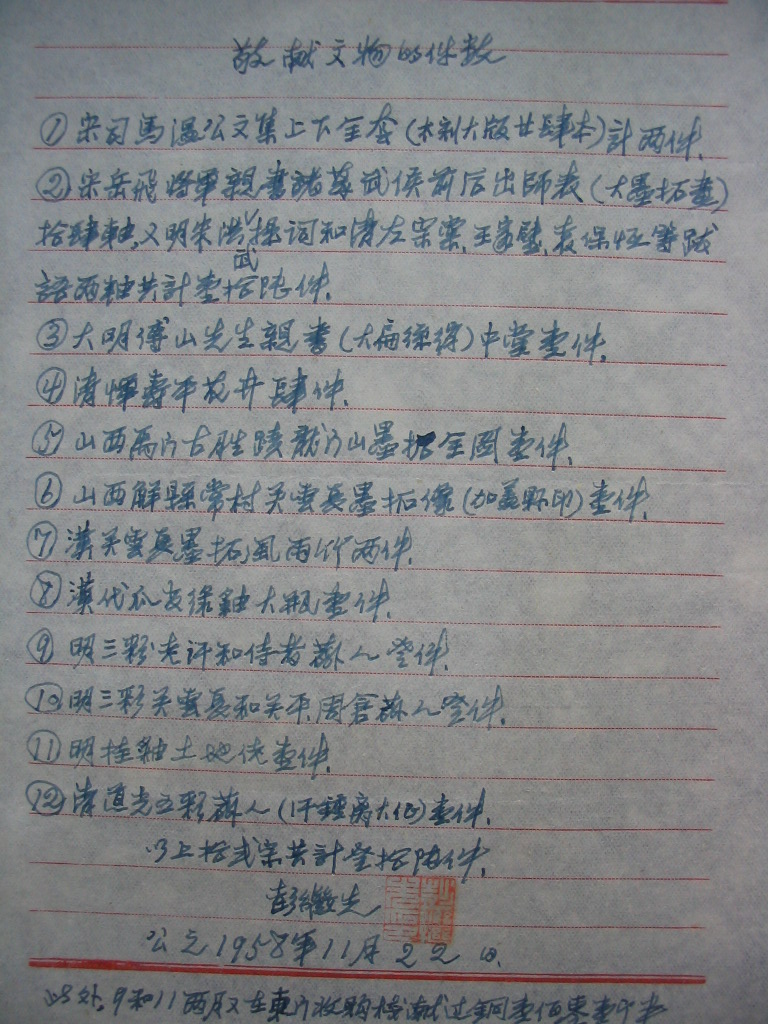 敬献文物的件数
①宋司马温公文集上下全套(木刻大版廿肆本)計两件.
②宋岳飛将軍親書諸葛武侯前后出師表(大墨拓壹)
拾肆軸,又明朱洪武操词和清左宗棠,王家璧,袁保恒等跋
語两軸共計壹拾陆件.
③大明傅山先生親書(大扁綾裱)中堂壹件.
④清惲寿平花卉肆件.
⑤山西禹门古胜蹟龍门山墨拓全图壹件.
⑥山西解縣常村关雲長墨拓像(加盖縣印)壹件.
⑦漢关雲長墨拓风雨竹两件.
⑧漢代瓜皮绿釉大瓶壹件.
⑨明三彩老評和侍者藝人壹件.
⑩明三彩关雲長和关平,周倉藝人壹件.
⑪明挂釉土地佬壹件.
⑫清道光五彩藝人(汗鍾离大仙)壹件.
以上拾弍宗共計叁拾陆件.
彭継先
公元1958年11月22日.
此外,9和11两月又在東门收購棧献过銅壹佰